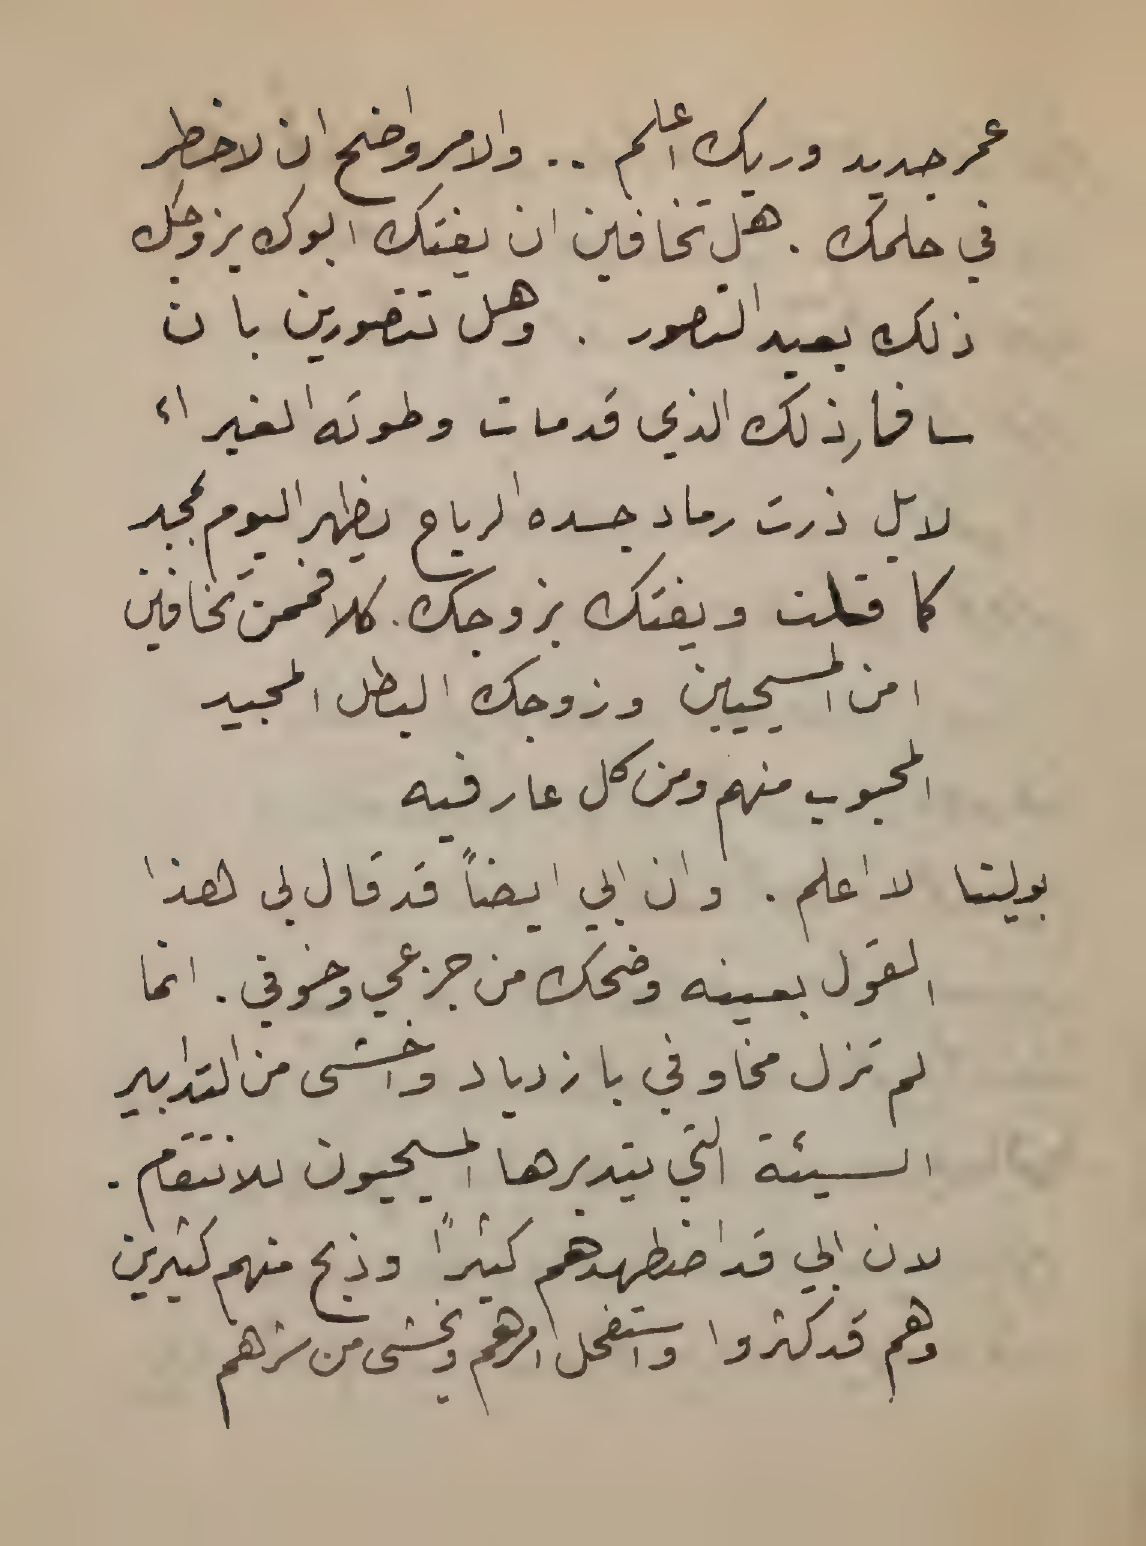 عمر جديد وربك اعلم .. والامر واضح ان لاخطر
في حلمك . هل تخافين ان يفتك ابوك بزوجك
ذلك بعيد التصور . وهل تتصورين بان
سافار ذلك الذي قد مات وطوته الغبراء
لابل ذرت رماد جسده الرياح يظهر اليوم مجد
كما قلت ويفتك بزوجك . كلا فممن تخافين
امن المسيحيين وزوجك البطل المجيد
المحبوب منهم ومن كل عارفيه
بولينا لا اعلم . وان ابي ايضاً قد قال لي هذا
القول بعينه وضحك من جزعي وخوفي . انما
لم تزل مخاوفي بازدياد واخشى من التدابير
السيئة التي يتدبرها المسيحيون للانتقام .
لان ابي قد اضطهدهم كثيراً وذبح منهم كثيرين
وهم قد كثروا واستفحل امرهم ويخشى من شرهم